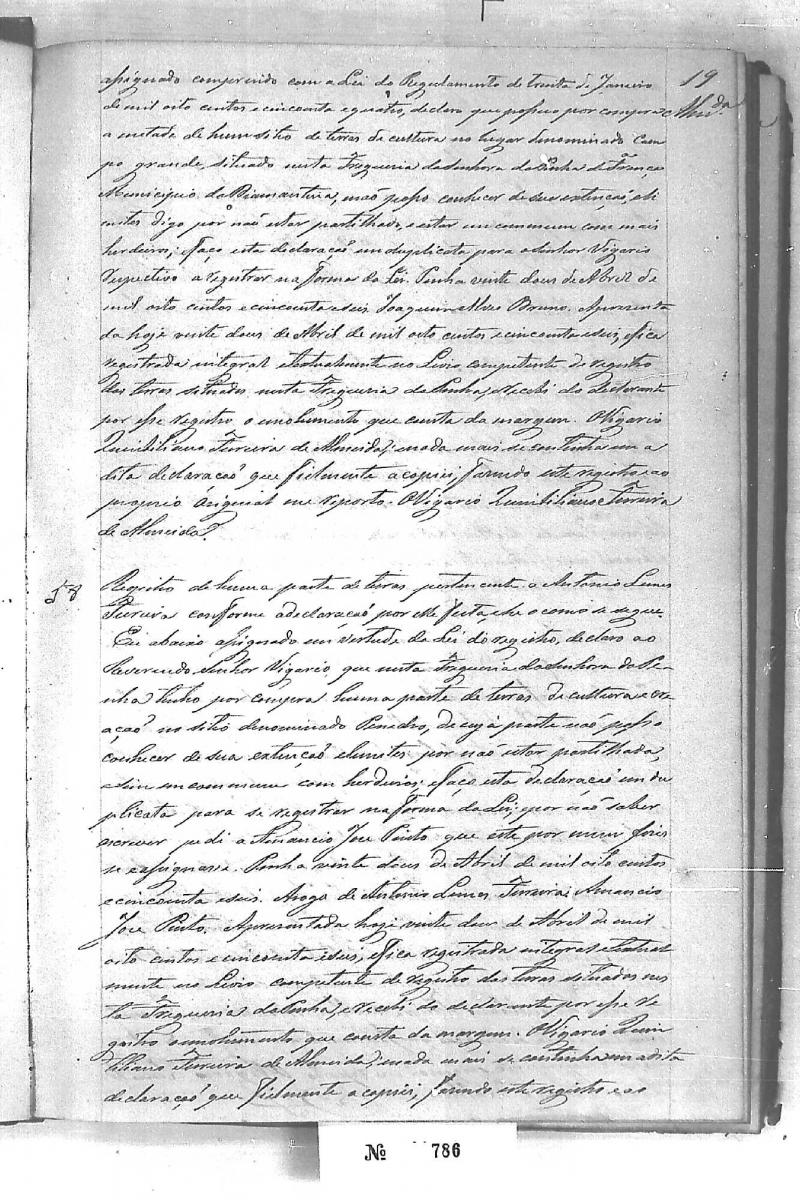 19
Alm.da
assignado comprindo com a Lei do Regulamento de trinta de Janeiro
de mil oito centos e cincoenta e quatro, declaro que possuo por compra
a metade de hum sitio de terras de cultura no lugar denominado Cam
po grande, situado nesta Freguesia da Senhora da Penha de França
Municipio da Diamantina, não posso conhecer de sua extenção, e li
mites digo por não estar partilhado, e estar em commum com mais
herdeiros; e faço esta declaração em duplicata para o Senhor Vigario
respectivo a registrar na forma da Lei. Penha vinte dous de Abril de
mil oito centos e cincoenta e seis, Joaquim Alves Bruno. Apresenta
da hoje vinte dous de Abril de mil oito centos e cincoenta e seis, e fica
registrada integral e textualmente no Livro competente do registro
das terras situadas nesta Freguesia da Penha, e recebi do Declarante
por esse registro o emolumento que consta da margem. O Vigario
Quintiliano Ferreira de Almeida; e nada mais se continha em a
dita declaração que fielmente a copiei, fazendo este registro e ao
proprio original me reporto. O Vigario Quintiliano Ferreira
de Almeida.
58
Registro de huma parte de terras pertencente a Antonio Lunes
Ferreira conforme a declaração por elle feita, e he o como se segue.
Eu abaixo assignado em vertude da Lei do registro, declaro ao
Reverendo Senhor Vigario, que nesta Freguesia da Senhora da Pe
nha tenho por compra huma parte de terras de cultura e cre
ação no sitio denominado Penedro, de cuja parte não posso
conhecer de sua extenção e limites por não estar partilhada,
e sim em commum com herdeiros; e faço esta declaração em du
plicata para se registrar na forma da Lei; e por não saber
escrever pedi a Amancio Jose Pinto que este por mim fizes
se e assignasse. Penha vinte dous de Abril de mil oito centos
e cincoenta e seis. Arogo de Antonio Lunes Ferreira. Amancio
Jose Pinto. Apresentada hoje vinte dous de Abril de mil
oito centos e cincoenta e seis, e fica registrada integral e textual
mente no Livro competente de registro das terras situadas nes
ta Freguesia da Penha, e recebi do declarante por esse re
gistro o emolumento que consta da margem. O Vigario Quin
tiliano Ferreira de Almeida; e nada mais se continha em a dita
declaração que fielmente a copiei, fazendo este registro e ao
№ 786